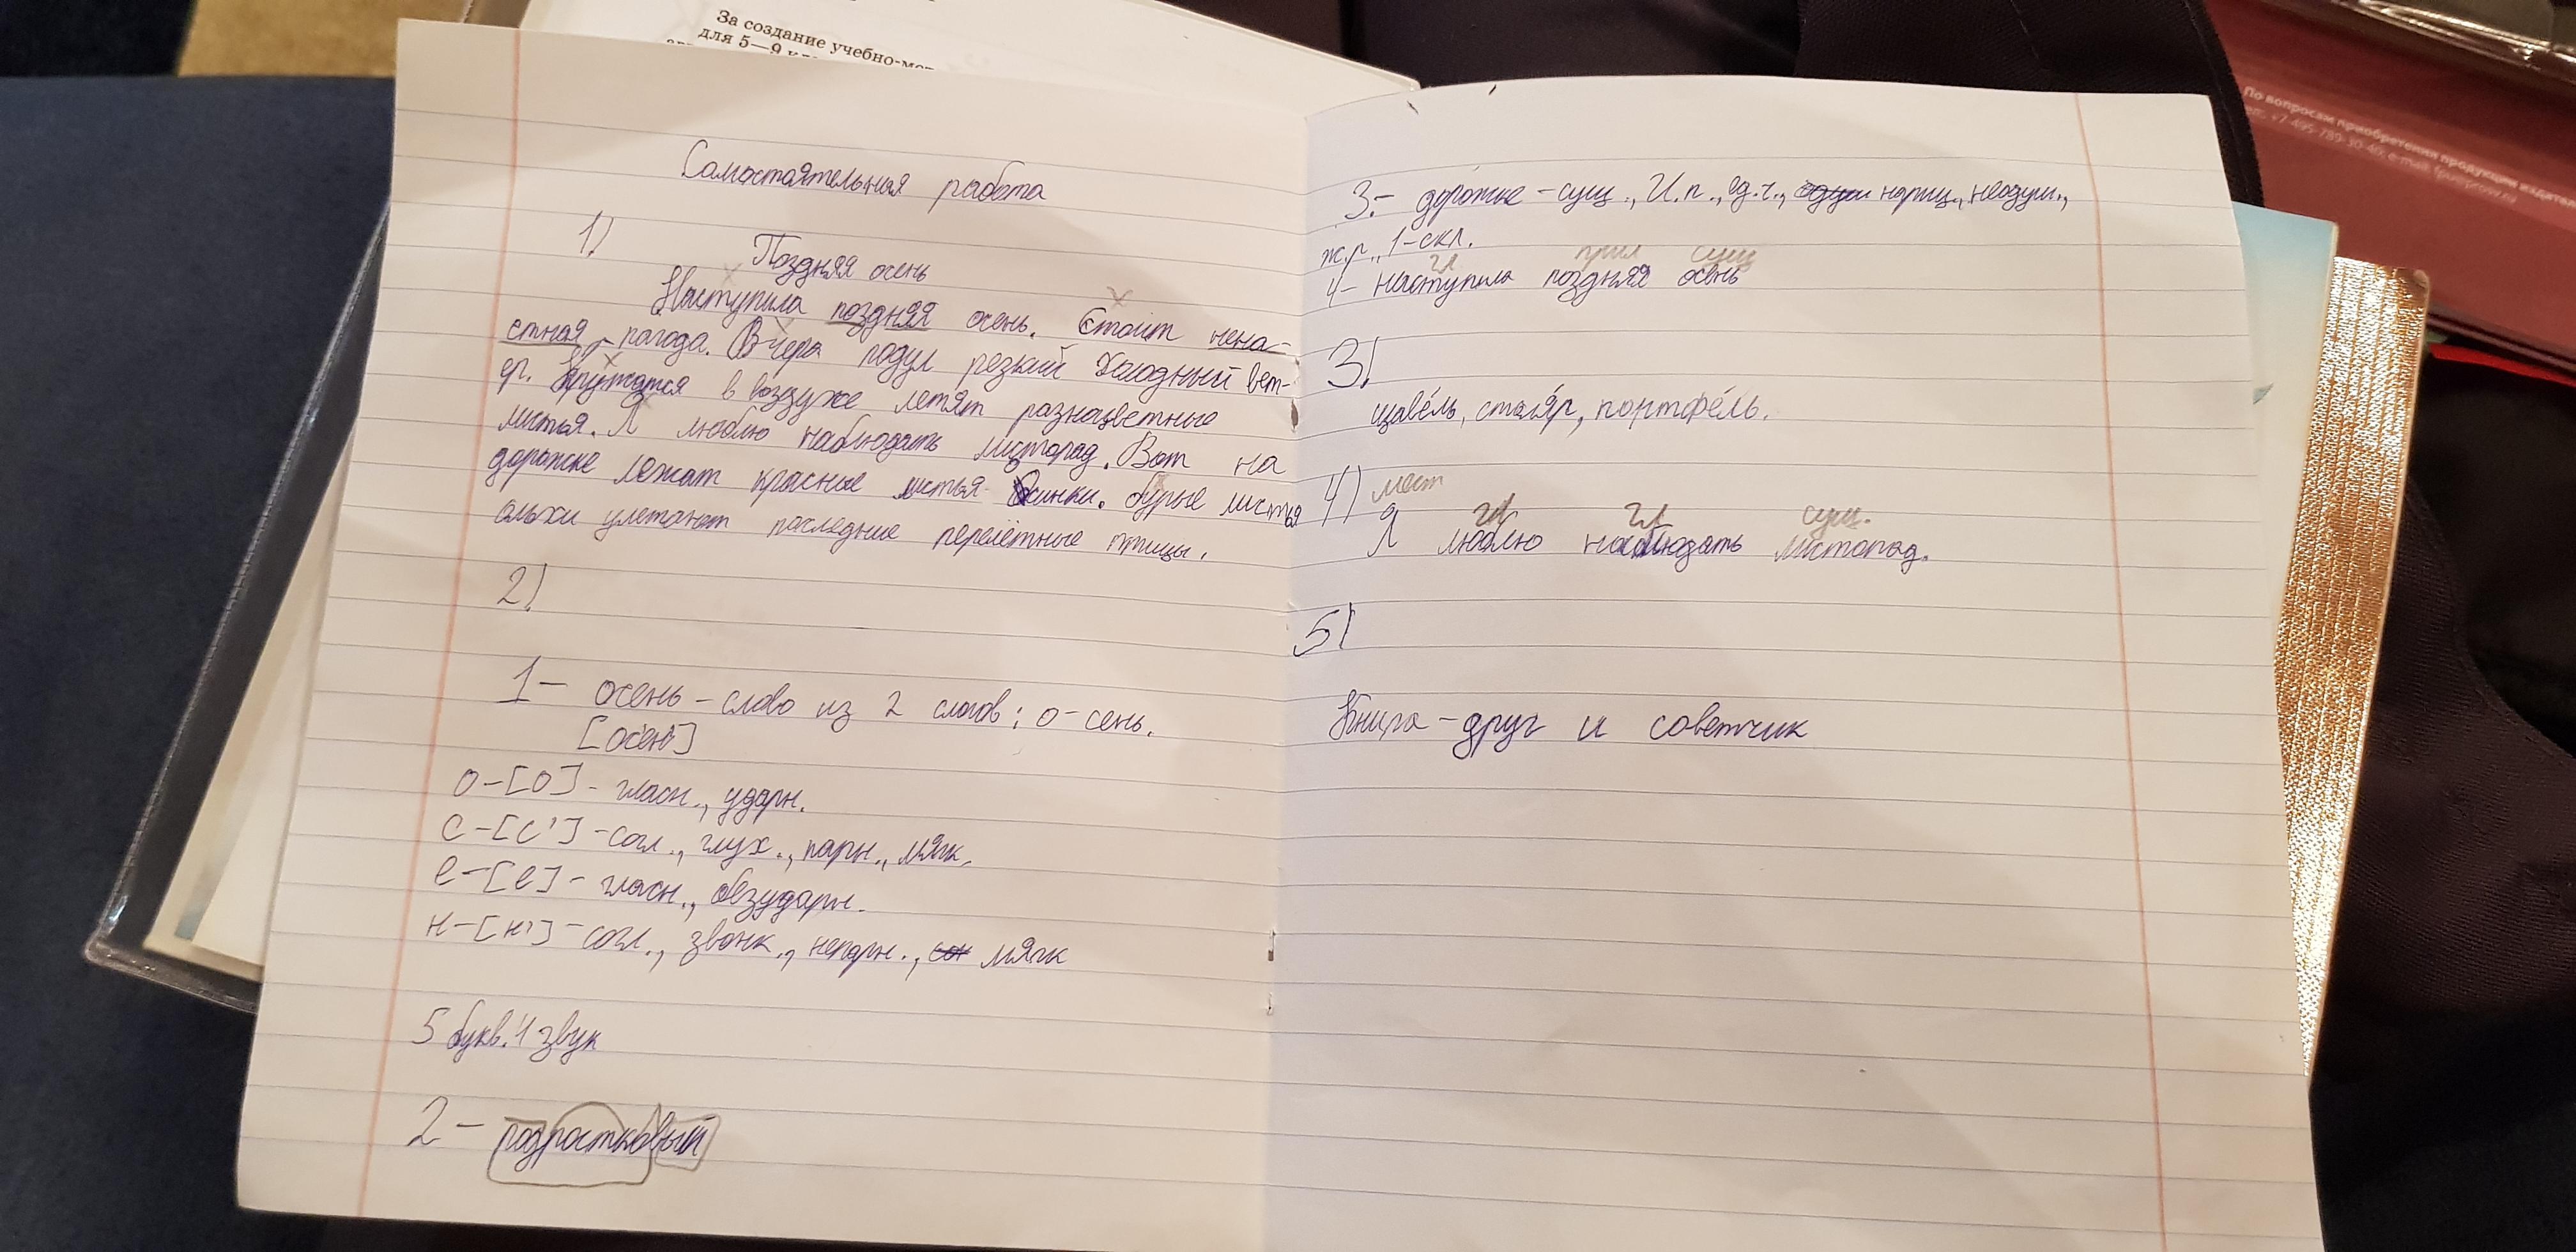 За создание учебно-мет
для 5—9 кла
По вопросам приобретения продукции издател
тел. +7 495-789-30-
e-mail:
Самостоятельная работа
1)
Поздняя осень
Наступила поздняя осень. Стоит нена-
стная погода. Вчера подул резкий холодный вет-
ер. Кружатся в воздухе летят разнацветные
листья. Я люблю наблюдать листопад. Вот на
дорожке лежат красные листья Осинки. бурые листья
ольхи улетают последние перелётные птицы.
2)
1- осень - слово из 2 слогов: о-сень.
[ос'ен']
о-[о]- гласн., ударн.
с-[с']-согл., глух., парн., мягк.
е-[е]- гласн., безударн.
н-[н']-согл., звонк., непарн., мягк
5 букв. 4 звук
2- подростковый
3.- дорожке - сущ., И.п., ед.ч., нариц., неодуш.,
ж.р., 1-скл.
гл прил сущ
4- наступила поздняя осень
3)
щаве́ль, столя́р, портфе́ль.
4) мест
гл гл сущ.
Я люблю наблюдать листопад.
5)
Книга - друг и советчик